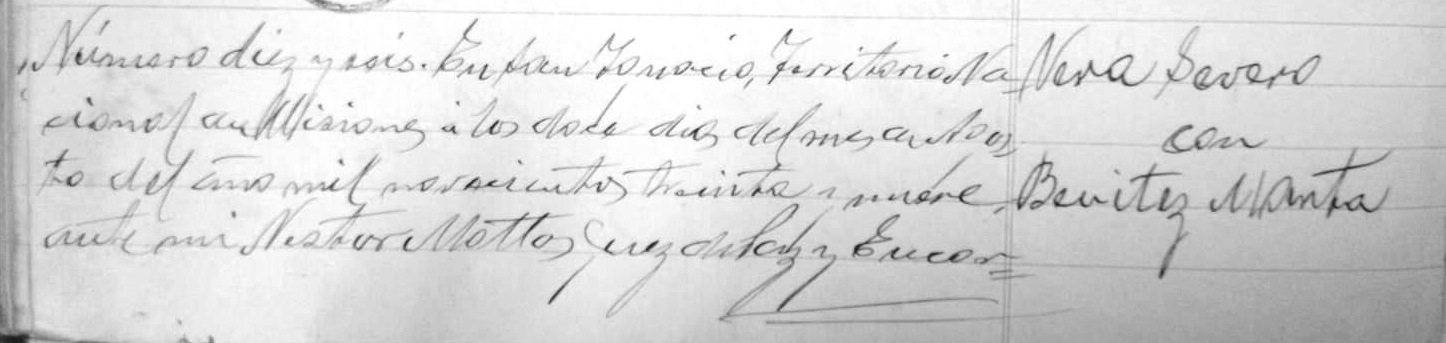 Número diez y seis. En San Ignacio, Territorio Na=
cional de Misiones a los doce dias del mes de Agos
to del año mil novecientos treinta y nueve,
ante mi Nestor Mottos Juez de Paz y Encar=
Vera Severo
con
Benitez Marta